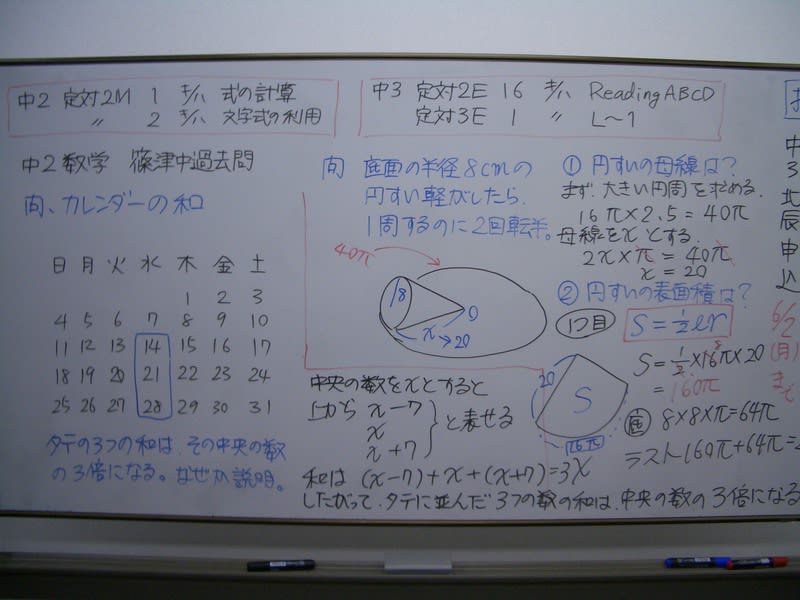 中2 定対2M 1 キ/ハ 式の計算
〃 2 キ/ハ 文字式の利用
中3 定対2E 16 キ/ハ ReadingABCD
定対3E 1 〃 L〜1
中2数学 篠津中過去問
問、カレンダーの和
日 月 火 水 木 金 土
1 2 3
4 5 6 7 8 9 10
11 12 13 14 15 16 17
18 19 20 21 22 23 24
25 26 27 28 29 30 31
タテの3つの和は、その中央の数
の3倍になる。なぜか説明。
問 底面の半径8cmの
円すい転がしたら、
1周するのに2回転半。
40π
8
O
x→20
中央の数をxとすると
上から x−7
x
x+7
と表せる
和は (x−7)+x+(x+7)=3x
したがって、タテに並んだ3つの数の和は、中央の数の3倍になる
① 円すいの母線は?
まず、大きい円周を求める。
16π×2.5=40π
母線をxとする。
2x×π=40π
x=20
② 円すいの表面積は?
1つ目
S=½lr
20
S
16π
S=½×16π×20
8
=160π
底 8×8×π=64π
ラスト160π+64π=2
中
3
北
辰
申
込
6/2
(月)
まで